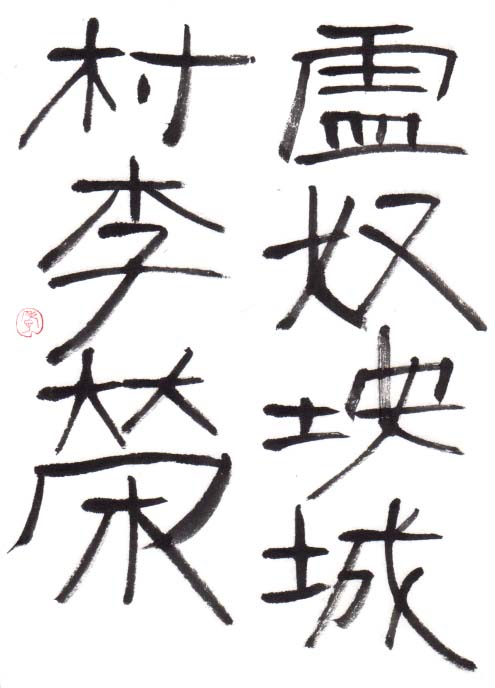 盧奴垵城
村李榮